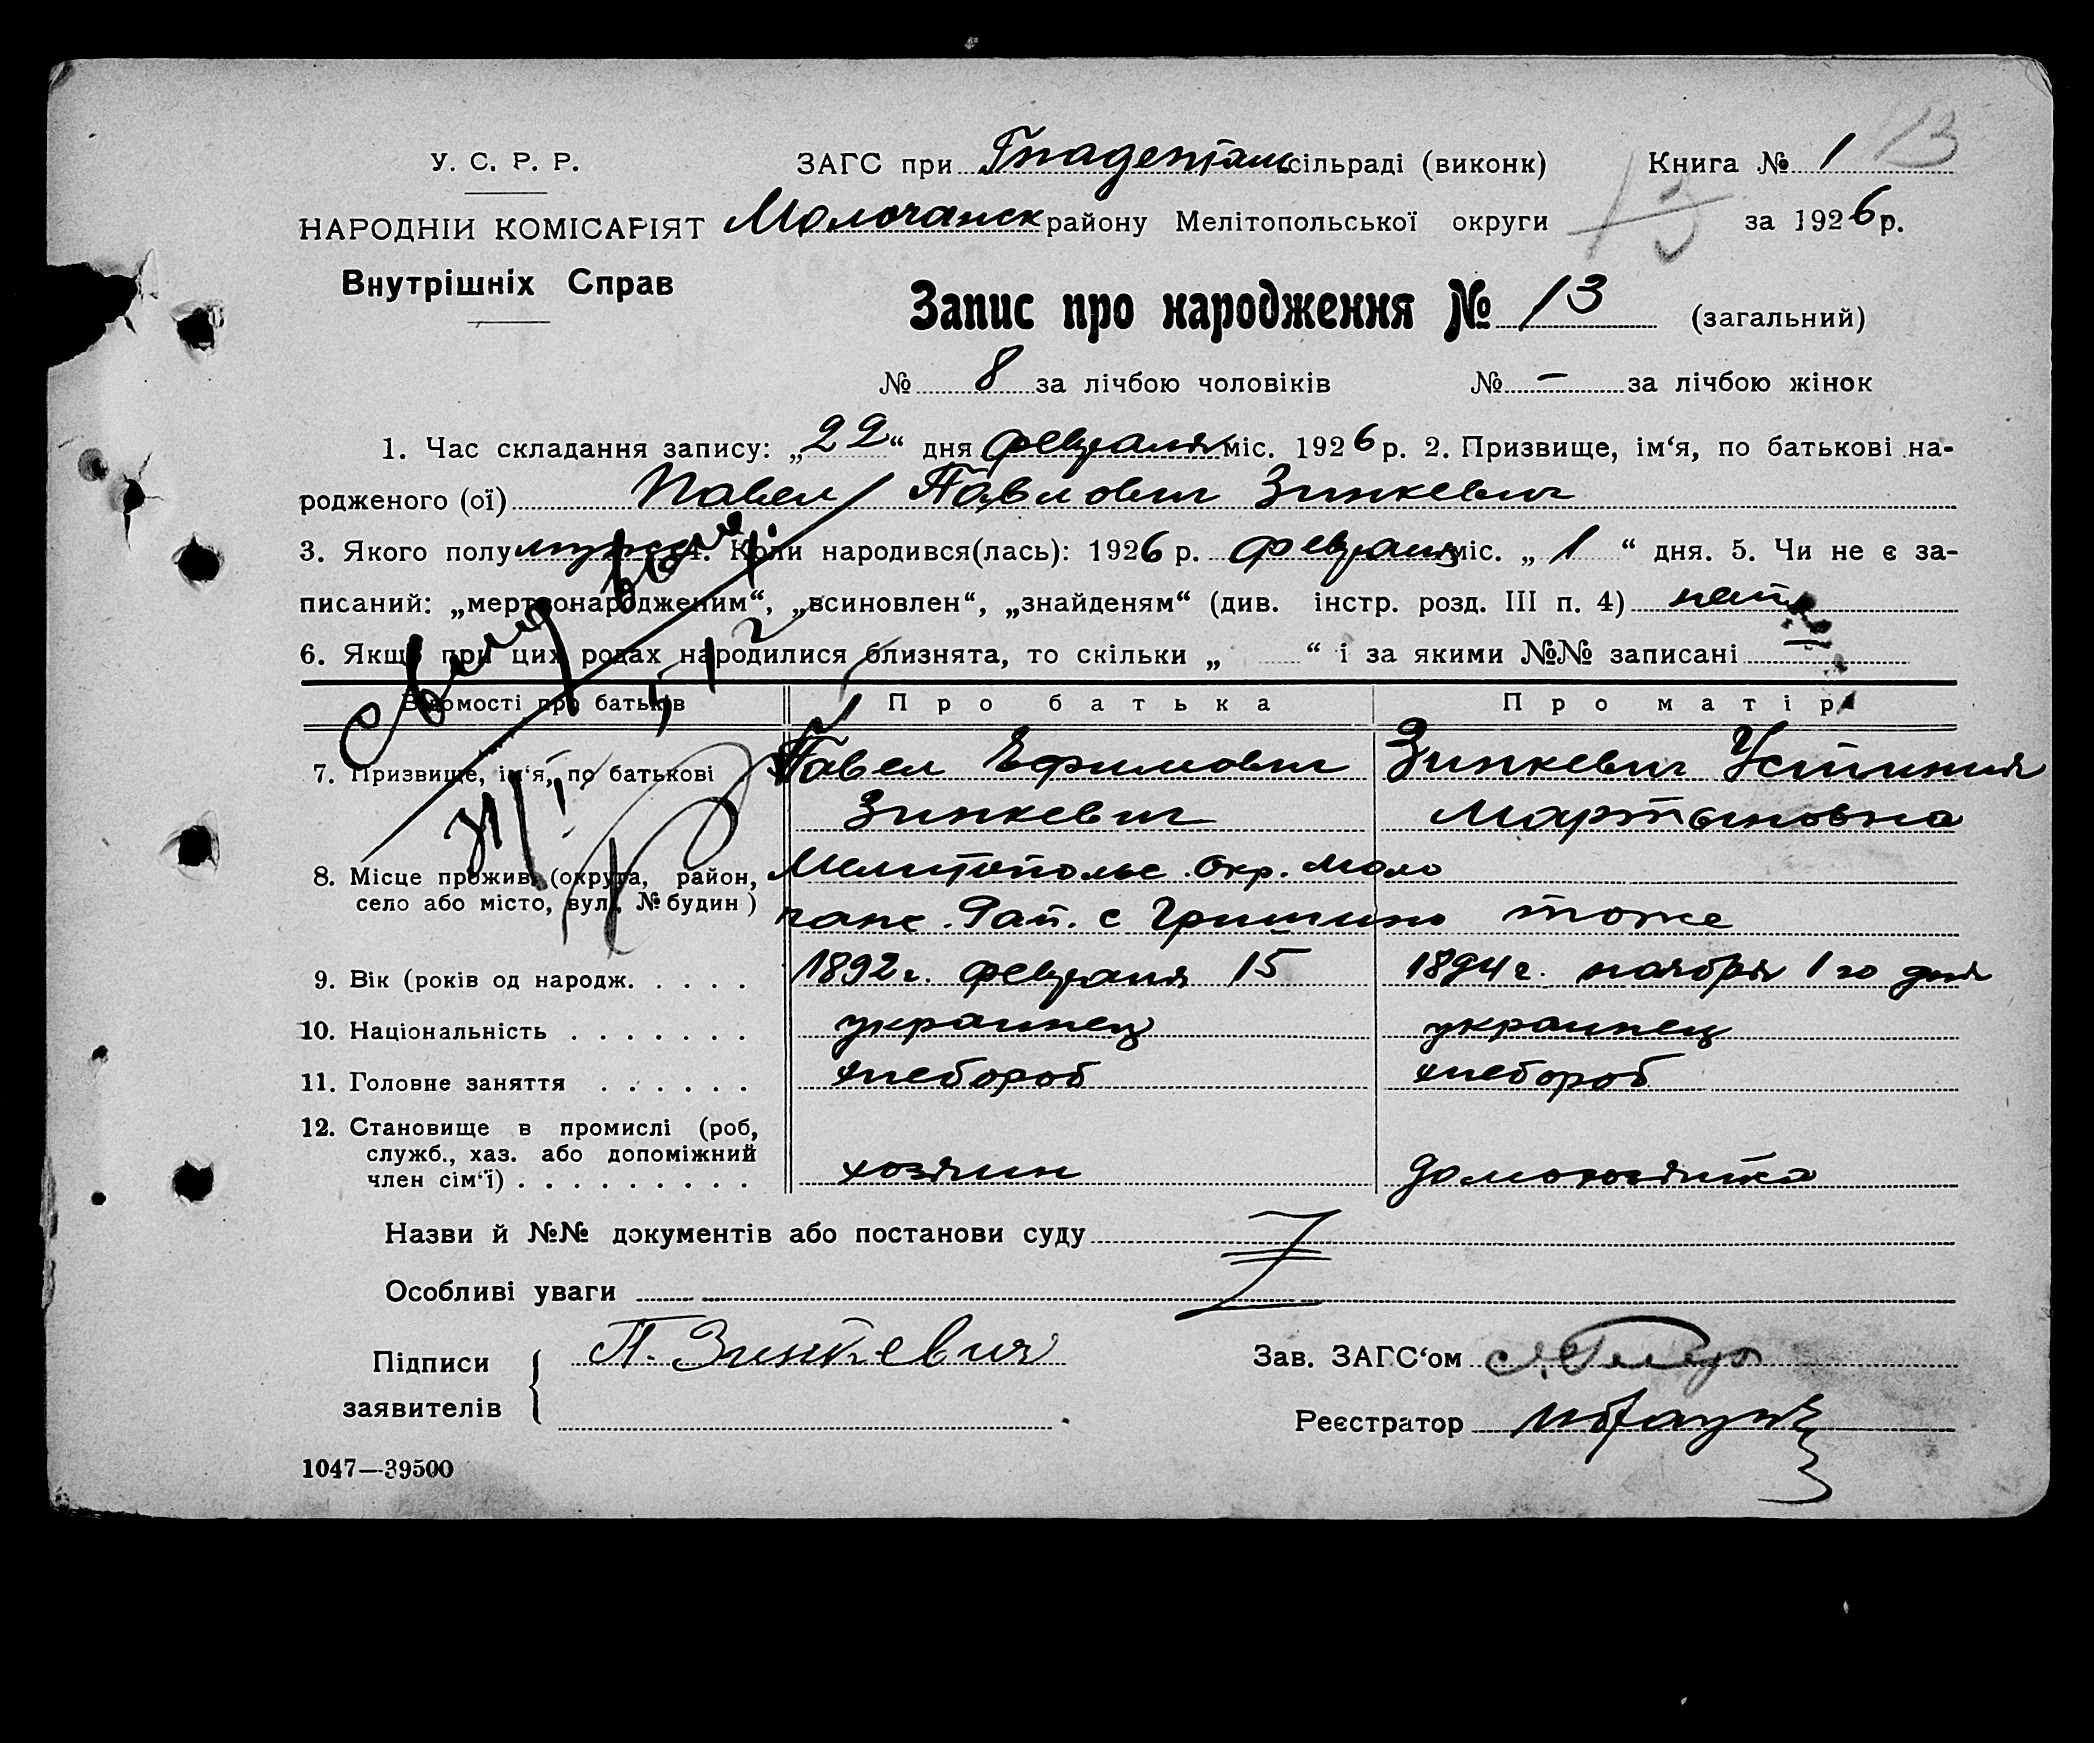 У. С. Р. Р.
НАРОДНІЙ КОМІСАРІЯТ
Внутрішніх Справ
ЗАГС при Гнаденталь сільраді (виконк) Книга № 1 13
Молочанск району Мелітопольської округи 13 за 1926 р.
Запис про народження № 13 (загальний)
№ 8 за лічбою чоловіків № – за лічбою жінок
1. Час складання запису: „22“ дня февраля міс. 1926 р. 2. Призвище, ім‘я, по батькові на-
родженого (ої) Павел Павлович Зинкевич
3. Якого полу мужск 4. Коли народився(лась): 1926 р. февраля міс. „1“ дня. 5. Чи не є за-
писаний: „мертвонародженим“, „всиновлен“, „знайденям“ (див. інстр. розд. III п. 4) нет
6. Якщо при цих родах народилися близнята, то скільки „ “ і за якими №№ записані –
Відомості про батьків Про батька Про матір
7. Призвище, ім‘я, по батькові Павел Ефимович Зинкевич Устиния
Зинкевич Мартыновна
8. Місце прожив. (округа, район, Мелитопольс. Окр. Моло
село або місто, вул., № будин) чанс. Рай. с Гришино тоже
9. Вік (років од народж. . . . . 1892 г. февраля 15 1894 г. ноября 1 го дня
10. Національність . . . . . . . украинец украинец
11. Головне заняття . . . . . . хлебороб хлебороб
12. Становище в промислі (роб,
служб., хаз. або допоміжний
член сім‘ї) . . . . . . . . . хозяин домохозяйка
Назви й №№ документів або постанови суду
Особливі уваги
Підписи
заявителів
П. Зинкевич
Зав. ЗАГС‘ом
Реєстратор
1047—39500